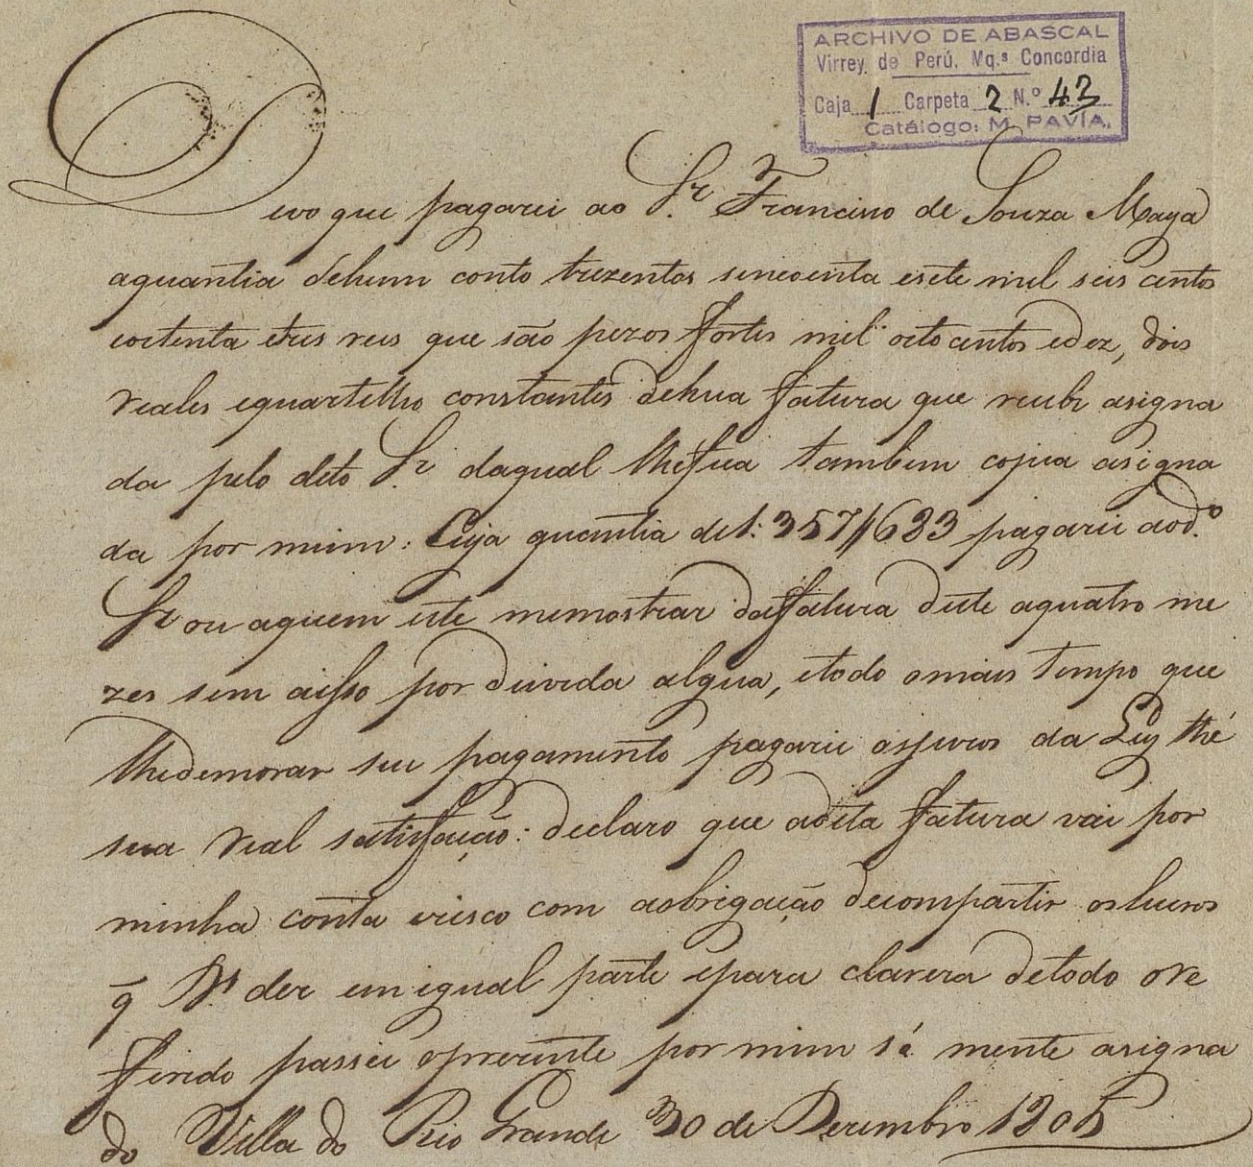 ARCHIVO DE ABASCAL
Virrey de Perú, Mq.s Concordia
Caja 1 Carpeta 2 N.º 43
Catálogo: M. PAVÍA.
Devo que pagarei ao Sr. Francisco de Souza Maya
aquantia dehum conto trezentos sincoenta esete mil seis centos
eoctenta etres reis que são pezos fortes mil octo centos edez, dois
reales equartilho constantes dehua fatura que recebi asigna
da pelo dito Sr. daqual lhefica tambem copia asigna
da por mim: Cuja quantia de 1:357//683 pagarei aod.º
Sr. ou aquem este memostrar dafatura deste aquatro me
zes sem aisso por duvida algua, etodo omais tempo que
lhedemorar seu pagamento pagarei osjuros da Ley thé
sua real satisfação: declaro que adita fatura vai por
minha conta erisco com aobrigação decompartir oslucros
q̄ Ds. der em igual parte epara clareza detodo ore
ferido passei opresente por mim só mente asigna
do Villa do Rio Grande 30 de Dezembro 1805